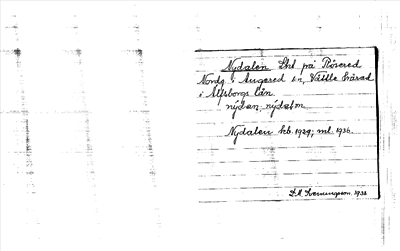 Nydalen Lhl på Rösered
Nordg i Angered sn, Vättle härad
i Älfsborgs län.
nýdan, nýdaln
Nydalen kb. 1929; ml. 1936.
1933